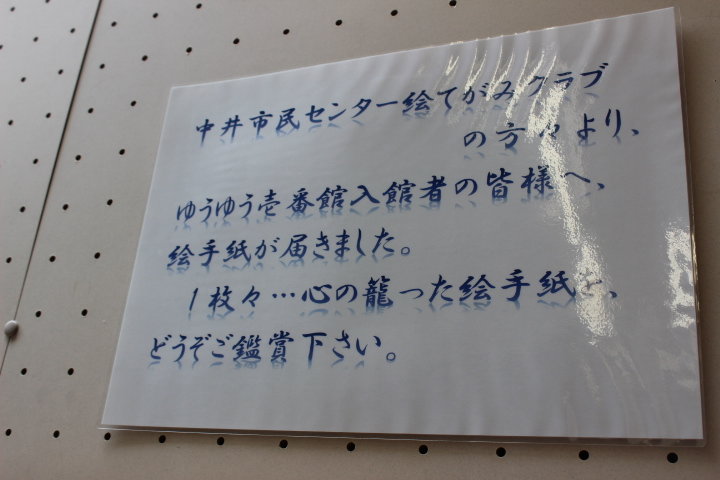 中井市民センター絵てがみクラブ
の方々より、
ゆうゆう壱番館入館者の皆様へ、
絵手紙が届きました。
1枚々…心の籠った絵手紙を、
どうぞご鑑賞下さい。